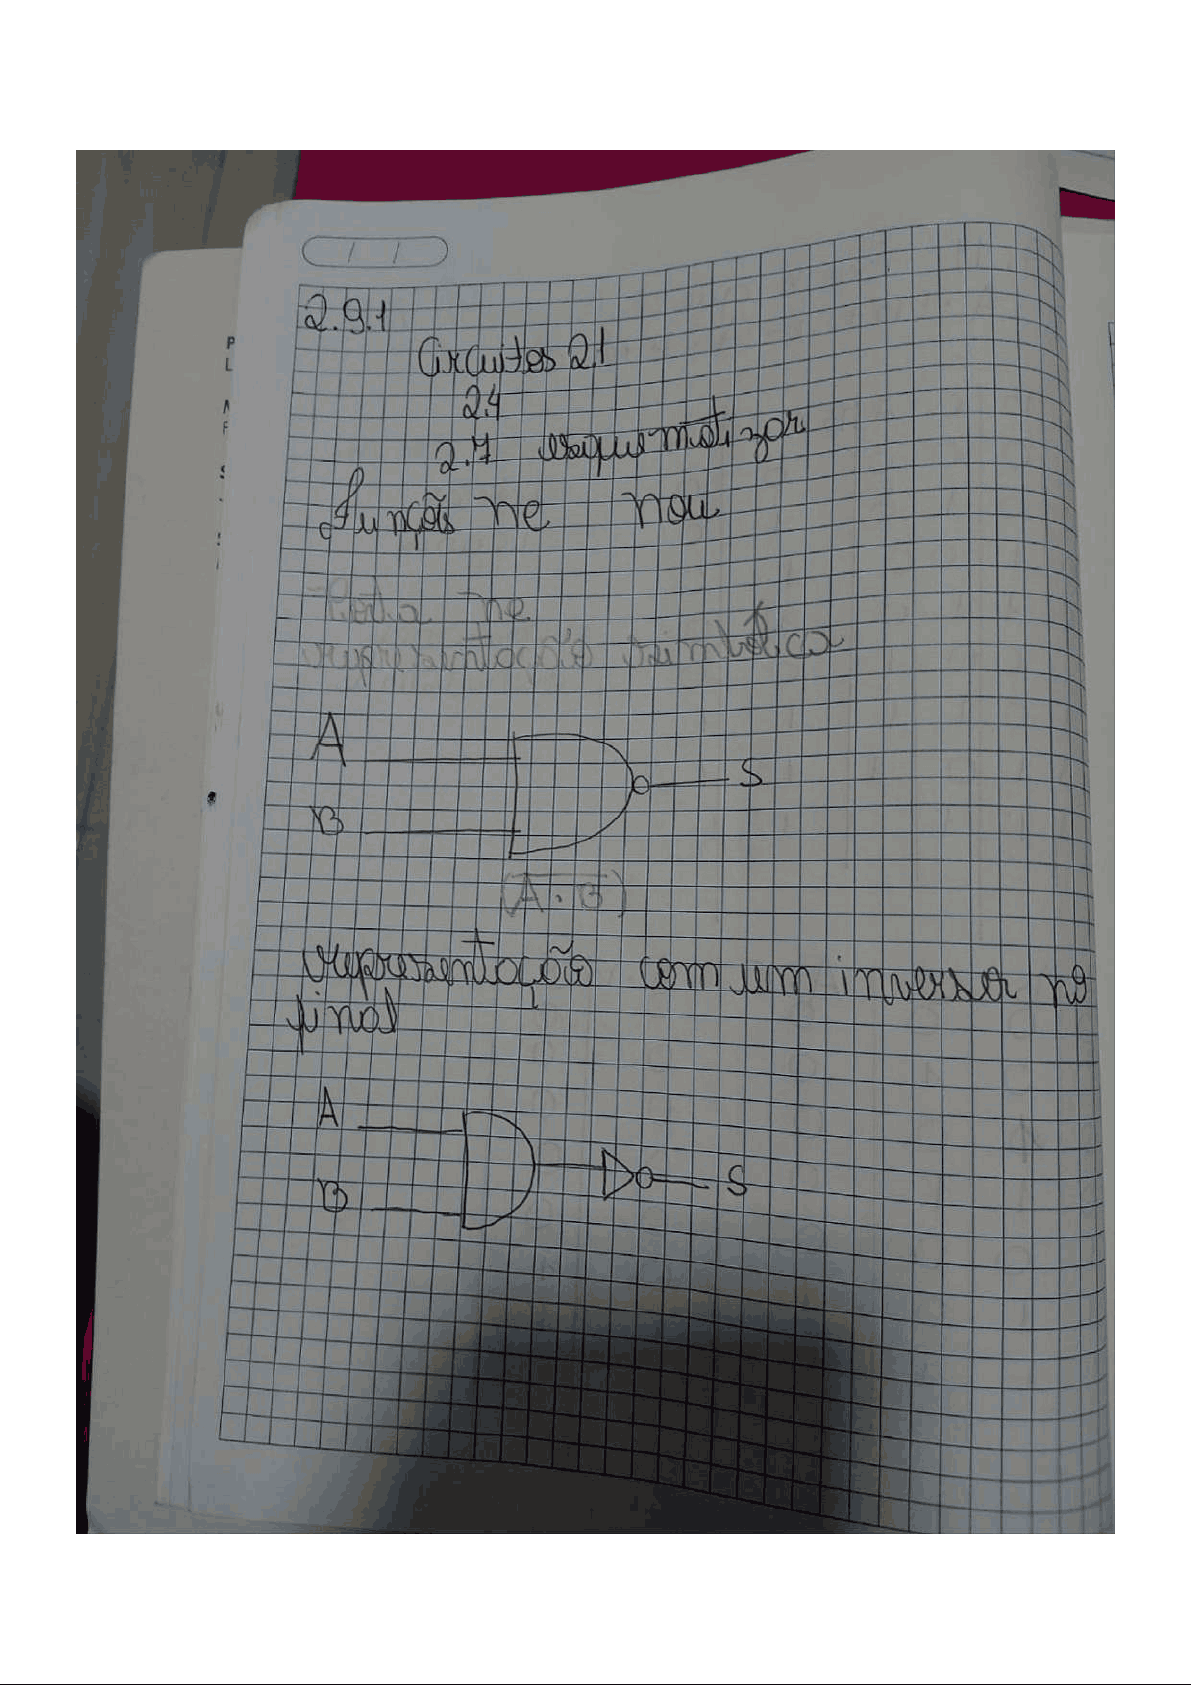 2.9.1
Circuitos 2.1
2.4
2.7 esquematizar
Funções ne nou
Porta ne
representação simbólica
A
S
B
(A . B)
representação com um inversor no
final
A
S
B